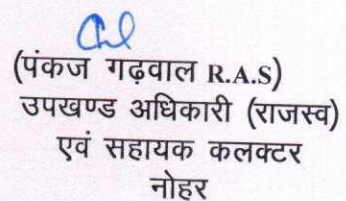 (पंकज गढ़वाल R.A.S)
उपखण्ड अधिकारी (राजस्व)
एवं सहायक कलक्टर
नोहर